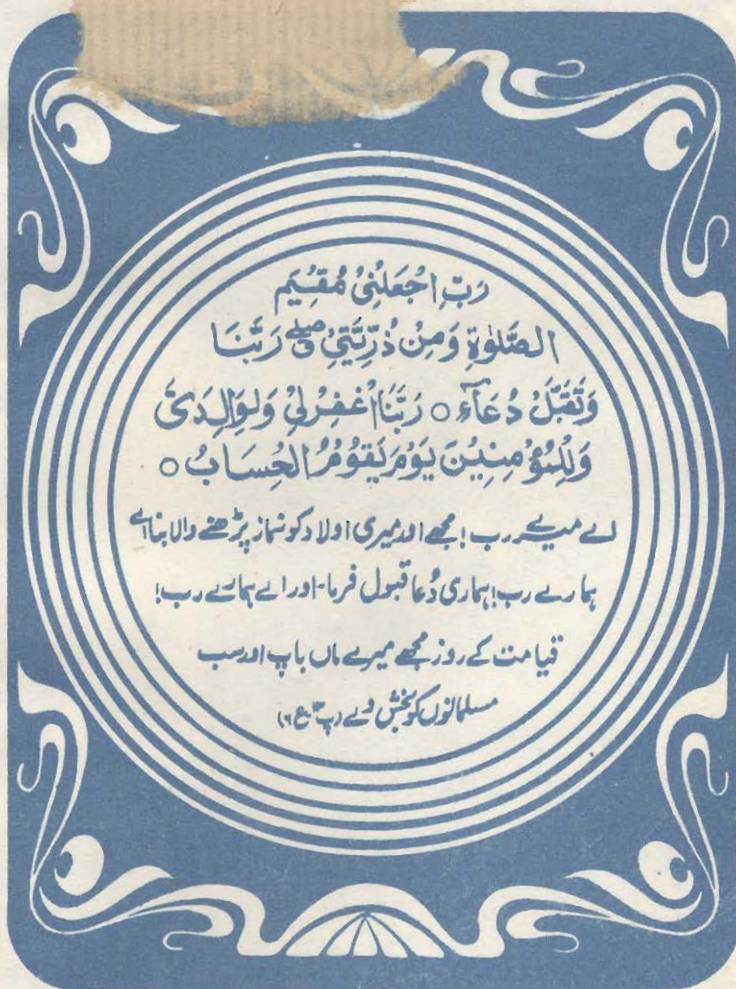 رَبِّ اجْعَلْنِیْ مُقِیْمَ
الصَّلٰوةِ وَمِنْ ذُرِّیَّتِیْ صلے رَبَّنَا
وَتَقَبَّلْ دُعَآءِ ○ رَبَّنَا اغْفِرْلِیْ وَلِوَالِدَیَّ
وَلِلْمُؤْمِنِیْنَ یَوْمَ یَقُوْمُ الْحِسَابُ ○
اے میرے رب! مجھے اور میری اولاد کو نماز پڑھنے والا بنا اے
ہمارے رب! ہماری دُعا قبول فرما۔ اور اے ہمارے رب!
قیامت کے روز مجھے میرے ماں باپ اور سب
مسلمانوں کو بخش دے (پ۱۳ ع۶)